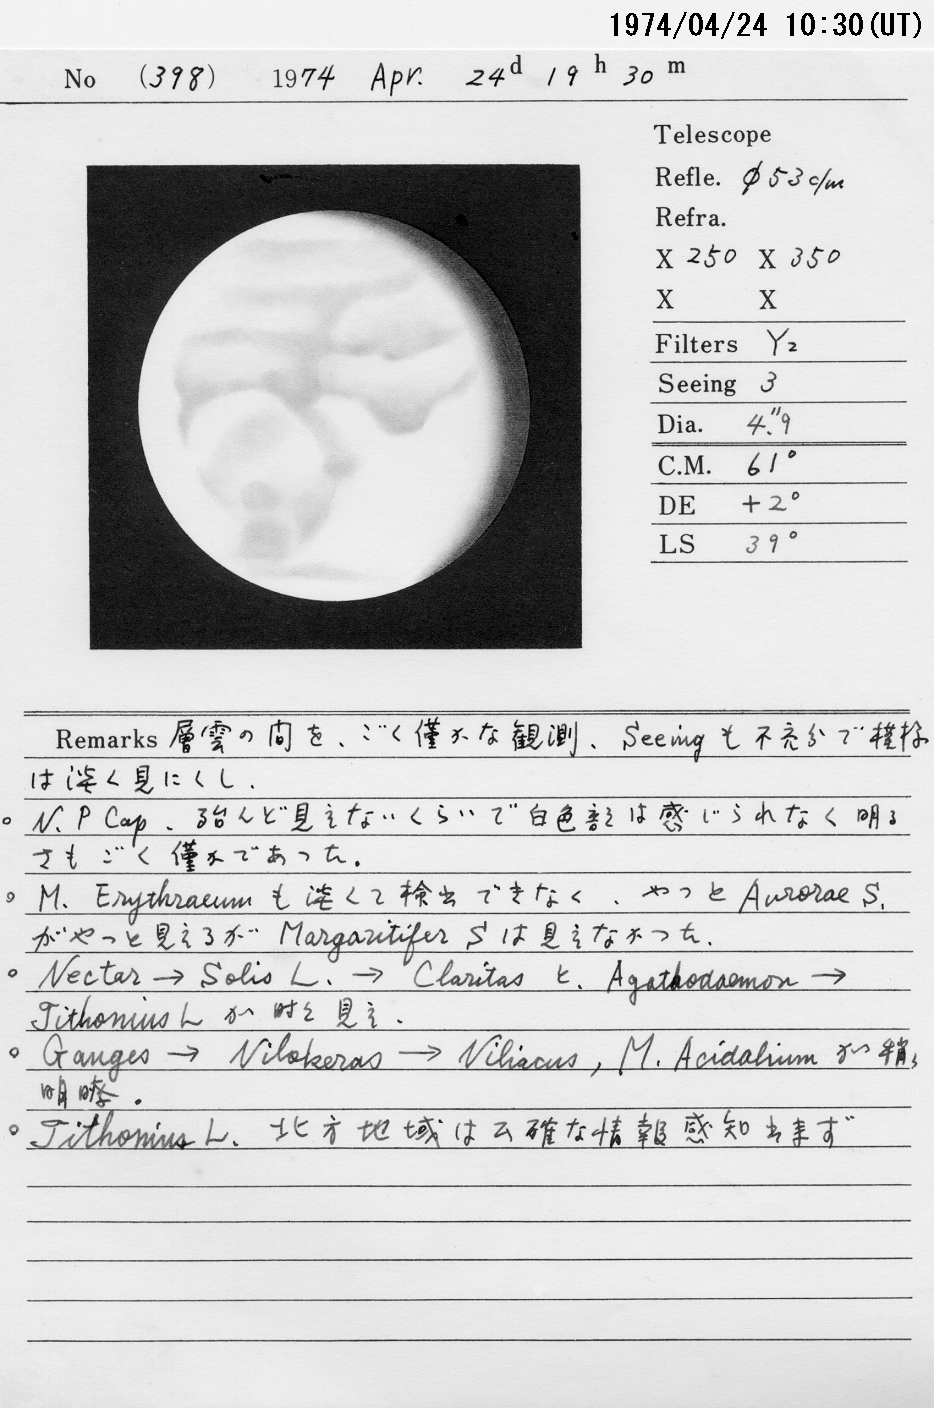 1974/04/24 10:30(UT)
No (398) 1974 Apr. 24d 19h 30m
Telescope
Refle. φ53c/m
Refra.
X 250 X 350
X X
Filters Y2
Seeing 3
Dia. 4."9
C.M. 61°
DE +2°
LS 39°
Remarks 層雲の間を、ごく僅かな観測、Seeingも不充分で模様
は淡く見にくし.
N. P Cap、殆んど見えないくらいで白色部は感じられなく明る
さもごく僅かであった.
M. Erythraeumも淡くて検出できなく、やっとAurorae S.
がやっと見えるがMargaritifer Sは見えなかった.
Nectar → Solis L. → Claritas と、Agathodaemon →
Tithonius L が時々見え.
Ganges → Nilokeras → Niliacus, M. Acidalium が稍々
明瞭.
Tithonius L. 北方地域は 確な情報感知出来ず